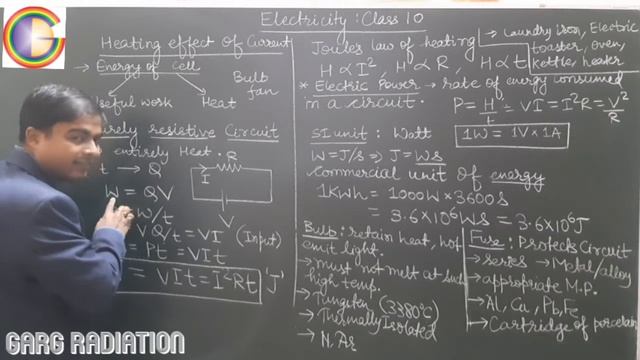 Electricity : Class 10
Heating effect of Current
→ Energy of Cell
Useful work
Heat
Bulb
fan
Purely resistive Circuit
entirely Heat.
t → Q
W = QV
W/t
V Q/t = VI (Input)
= Pt = VIt
= VIt = I²Rt J
R
I
V
Joules law of heating
H ∝ I², H ∝ R, H ∝ t
→ Laundry iron, Electric
toaster, oven,
kettle, heater
* Electric Power → rate of energy consumed
in a circuit.
P = H/t = VI = I²R = V²/R
SI unit : Watt
1W = 1V × 1A
W = J/s ⇒ J = Ws
Commercial unit of energy
1KWh = 1000W × 3600s
= 3.6×10⁶ Ws = 3.6×10⁶ J
Bulb : retain heat, hot
emit light.
→ must not melt at such
high temp.
→ Tungsten (3380°C)
→ Thermally Isolated
→ N, Ar
Fuse : Protects Circuit
→ series → Metal/alloy
→ appropriate M.P.
→ Al, Cu, Pb, Fe
→ Cartridge of porcelain
GARG RADIATION